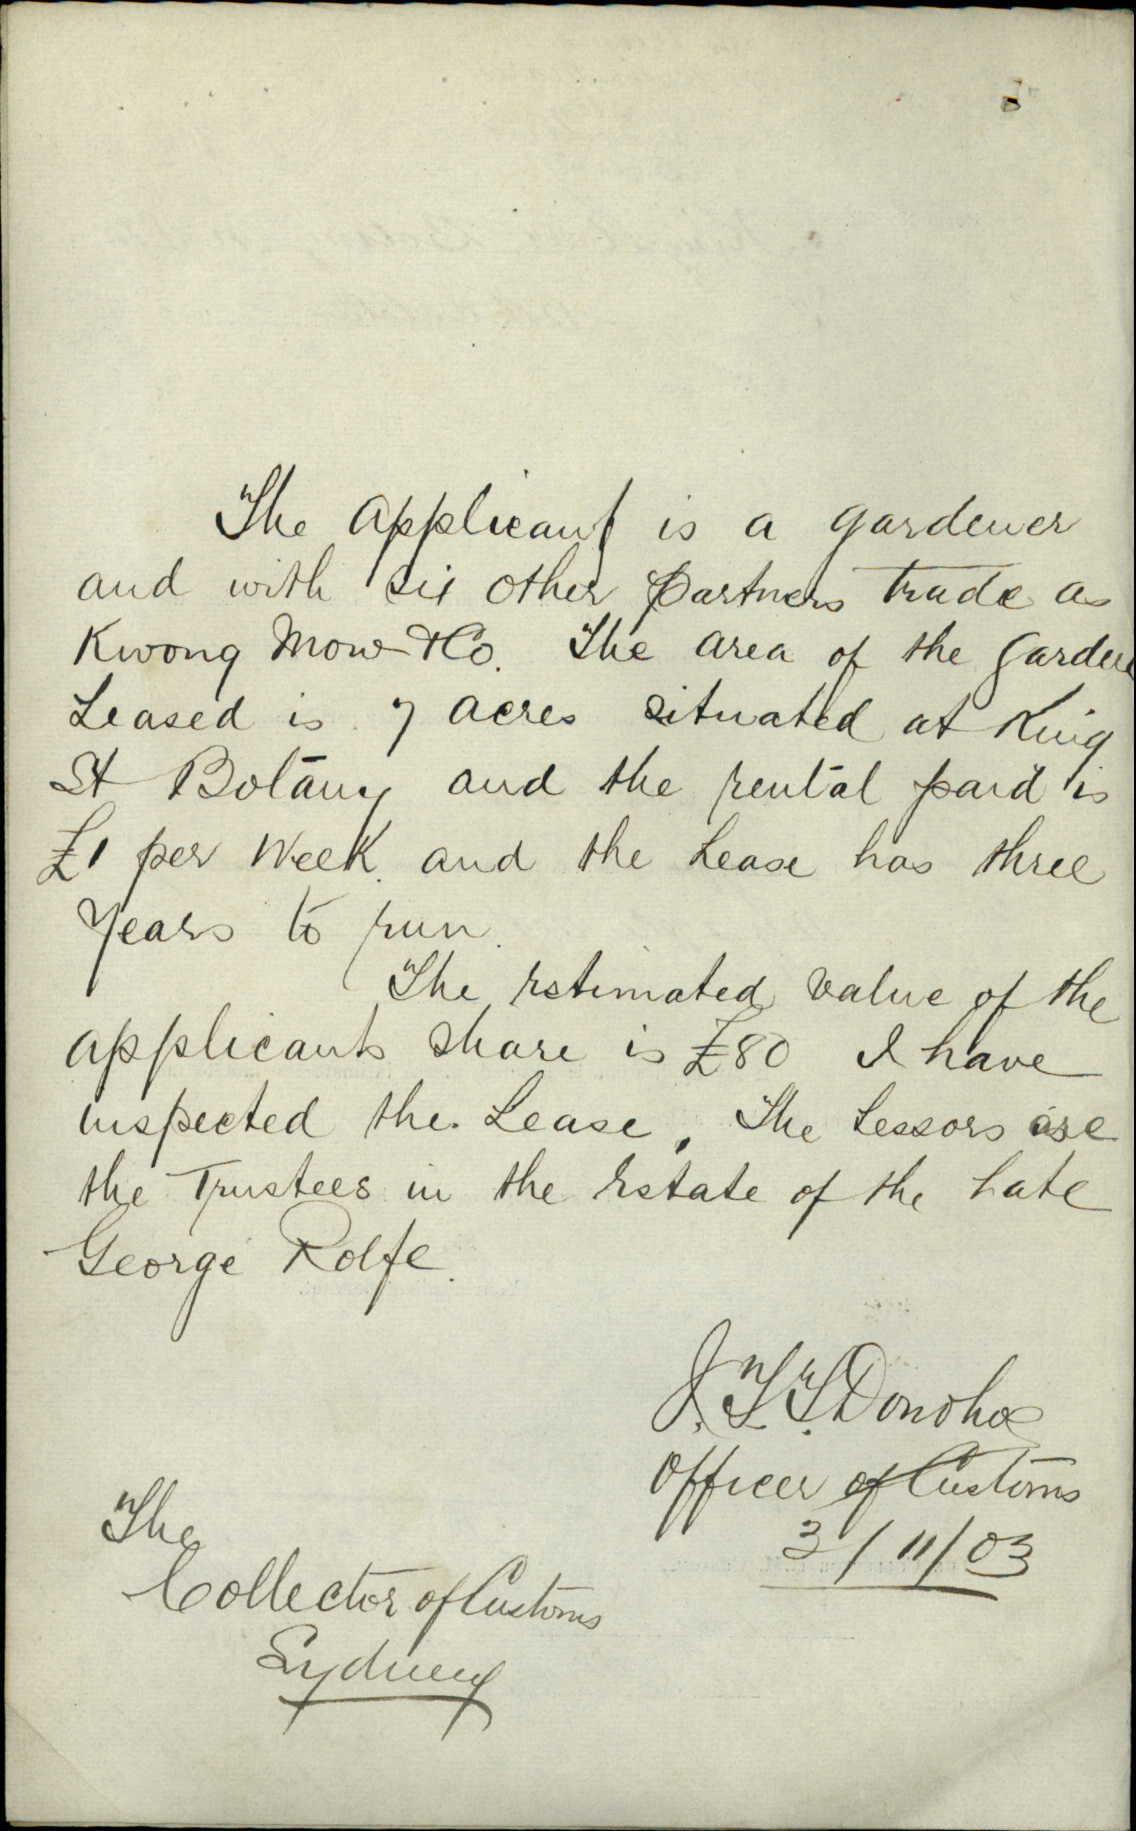 The applicant is a gardener
and with six other partners trade as
Kwong Mow & Co. The area of the garden
Leased is 7 acres situated at King
St Botany and the rental paid is
£1 per week and the Lease has three
years to run.
The Estimated value of the
applicants share is £80 I have
inspected the Lease. The Lessors are
the Trustees in the Estate of the late
George Rolfe.
J. T. T. Donohoe
Officer of Customs
3/11/03
The
Collector of Customs
Sydney